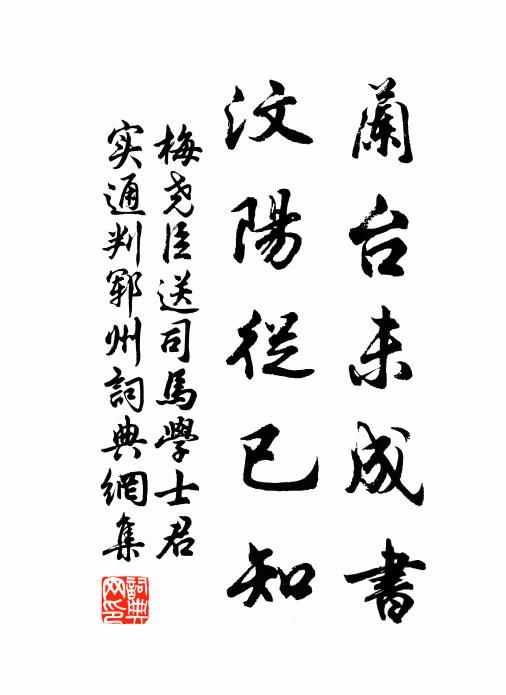 蘭台未成書
汶陽從已知
梅尧臣送司馬學士君
实通判郓州詞典網集
詞典网印